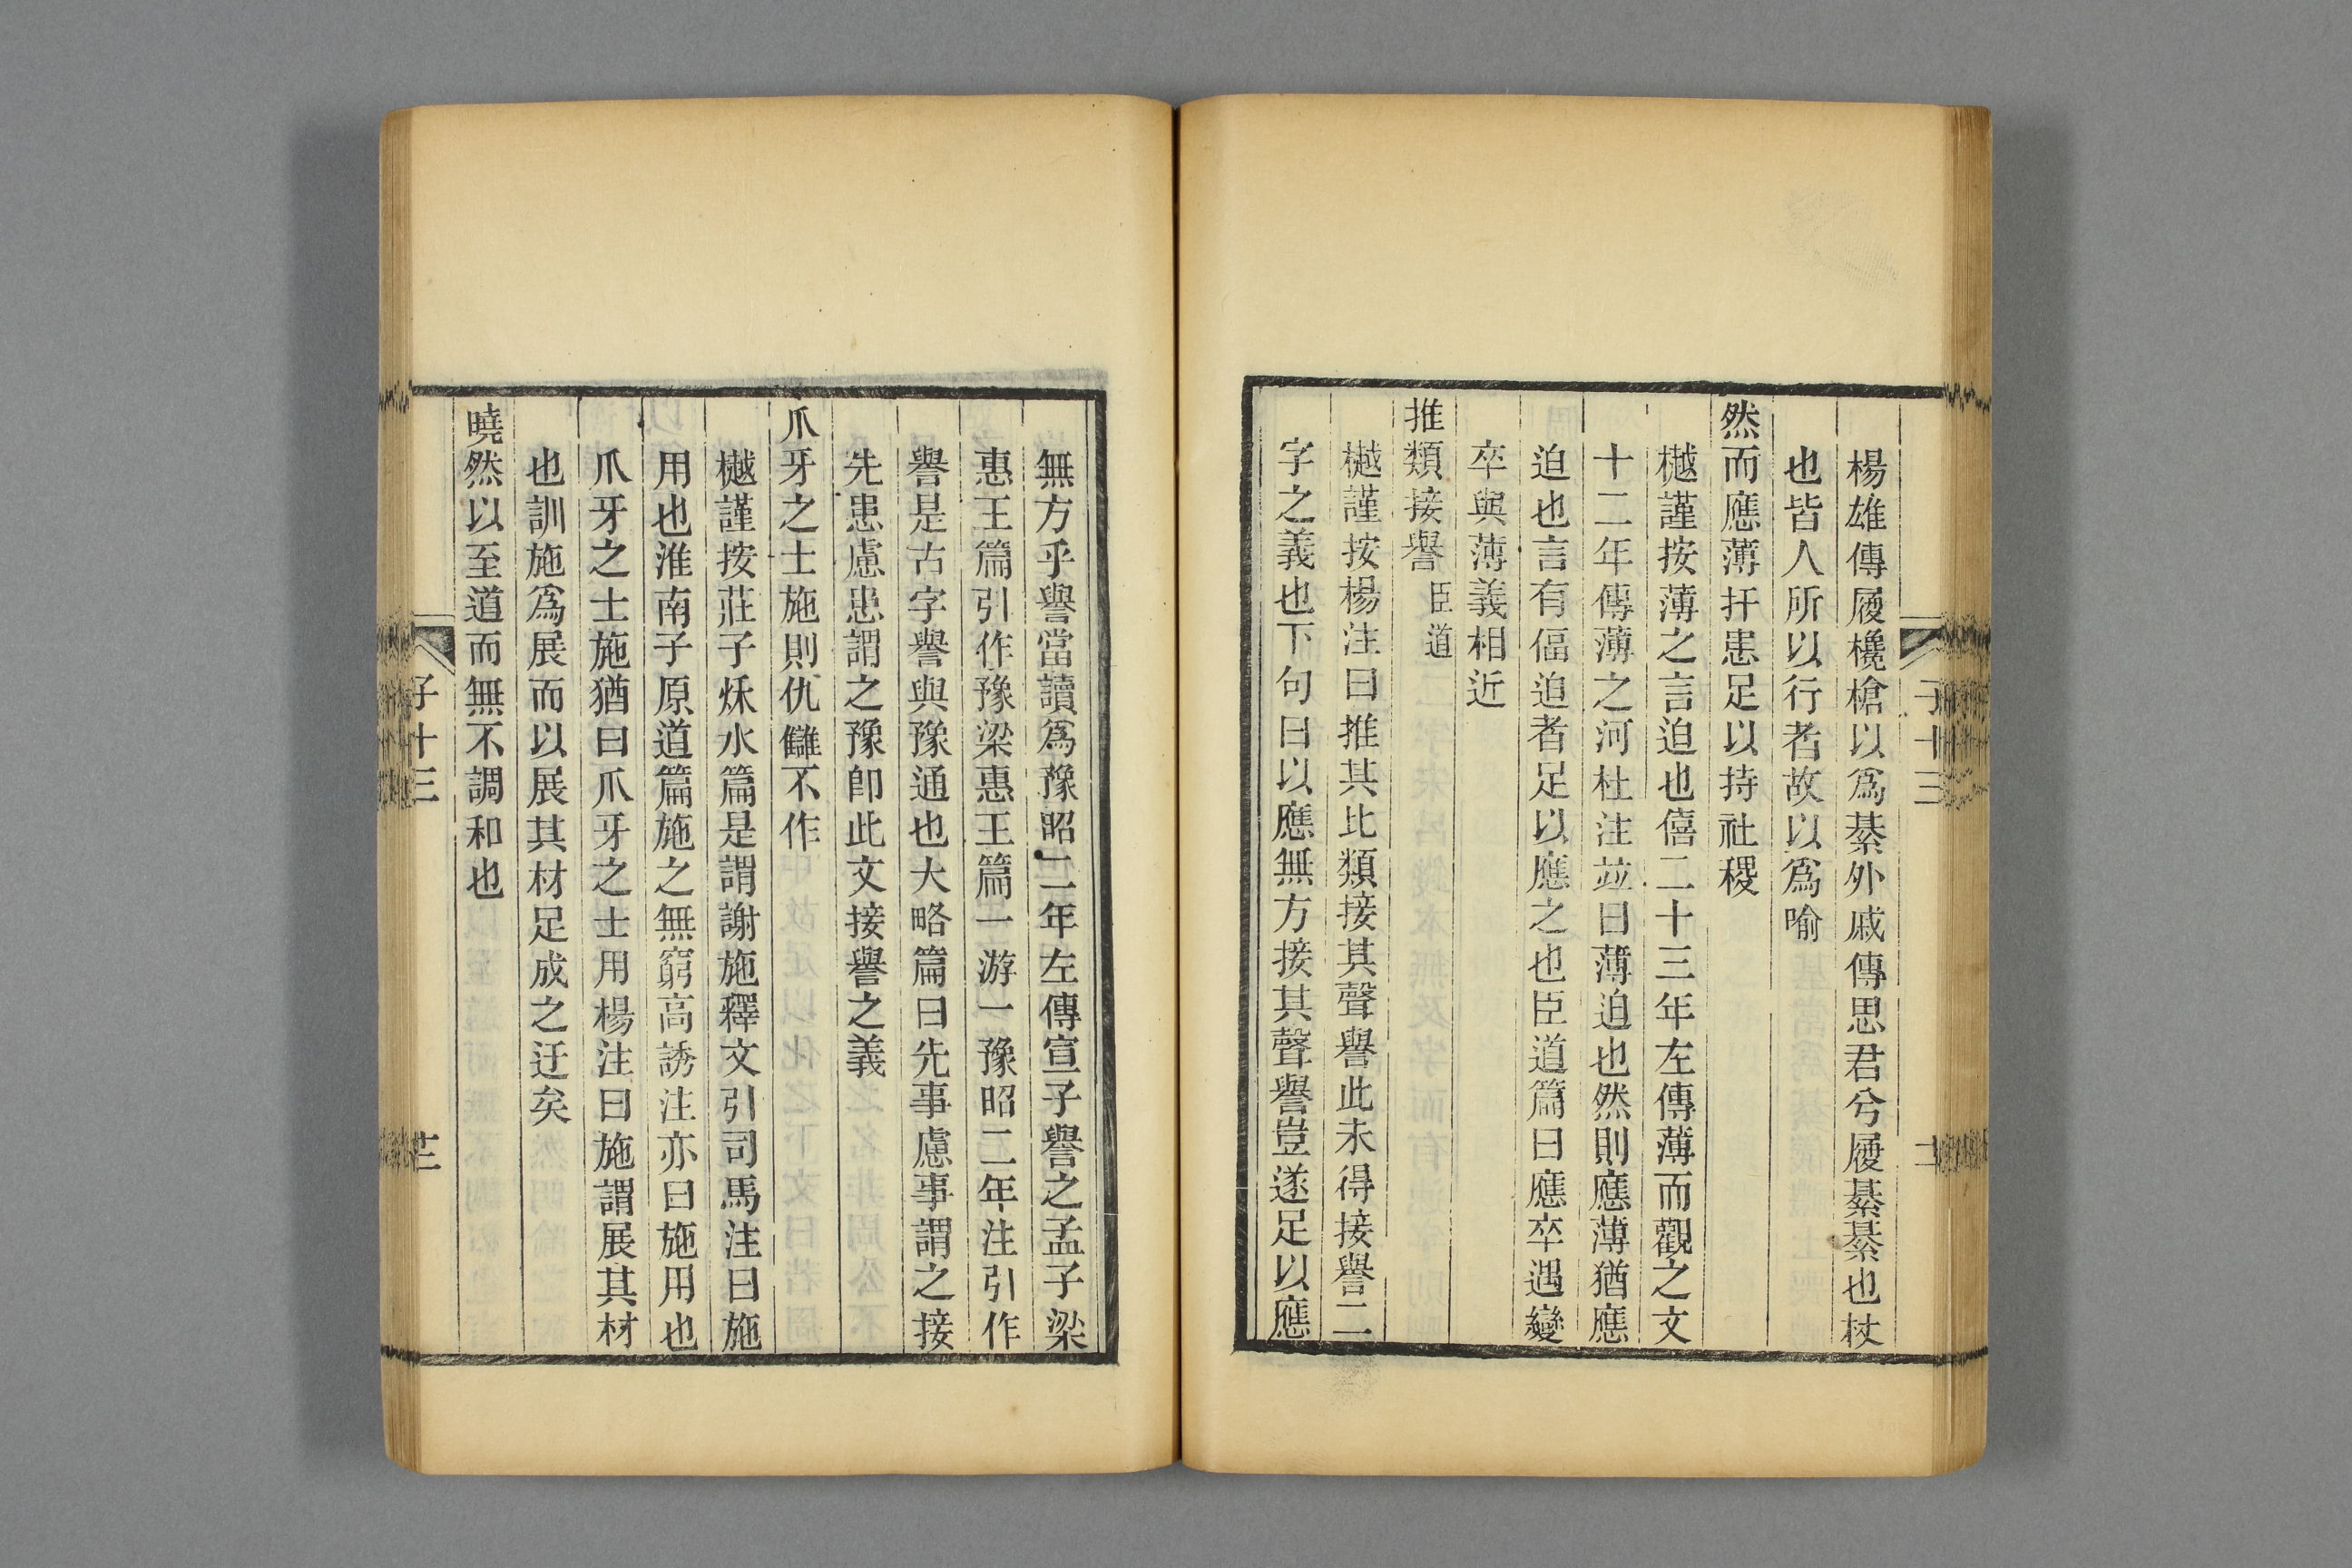 楊雄傳履欃槍以爲綦外戚傳思君兮履綦綦也杖
也皆人所以行者故以爲喻
然而應薄扞患足以持社稷
樾謹按薄之言迫也僖二十三年左傳薄而觀之文
十二年傳薄之河杜注竝曰薄迫也然則應薄猶應
迫也言有偪迫者足以應之也臣道篇曰應卒遇變
卒與薄義相近
推類接譽臣道
樾謹按楊注曰推其比類接其聲譽此未得接譽二
字之義也下句曰以應無方接其聲譽豈遂足以應
子十三
無方乎譽當讀爲豫昭二年左傳宣子譽之孟子梁
惠王篇引作豫梁惠王篇一游一豫昭二年注引作
譽是古字譽與豫通也大略篇曰先事慮事謂之接
先患慮患謂之豫卽此文接譽之義
爪牙之士施則仇讎不作
樾謹按莊子秌水篇是謂謝施釋文引司馬注曰施
用也淮南子原道篇施之無窮高誘注亦曰施用也
爪牙之士施猶曰爪牙之士用楊注曰施謂展其材
也訓施爲展而以展其材足成之迂矣
曉然以至道而無不調和也
子十三